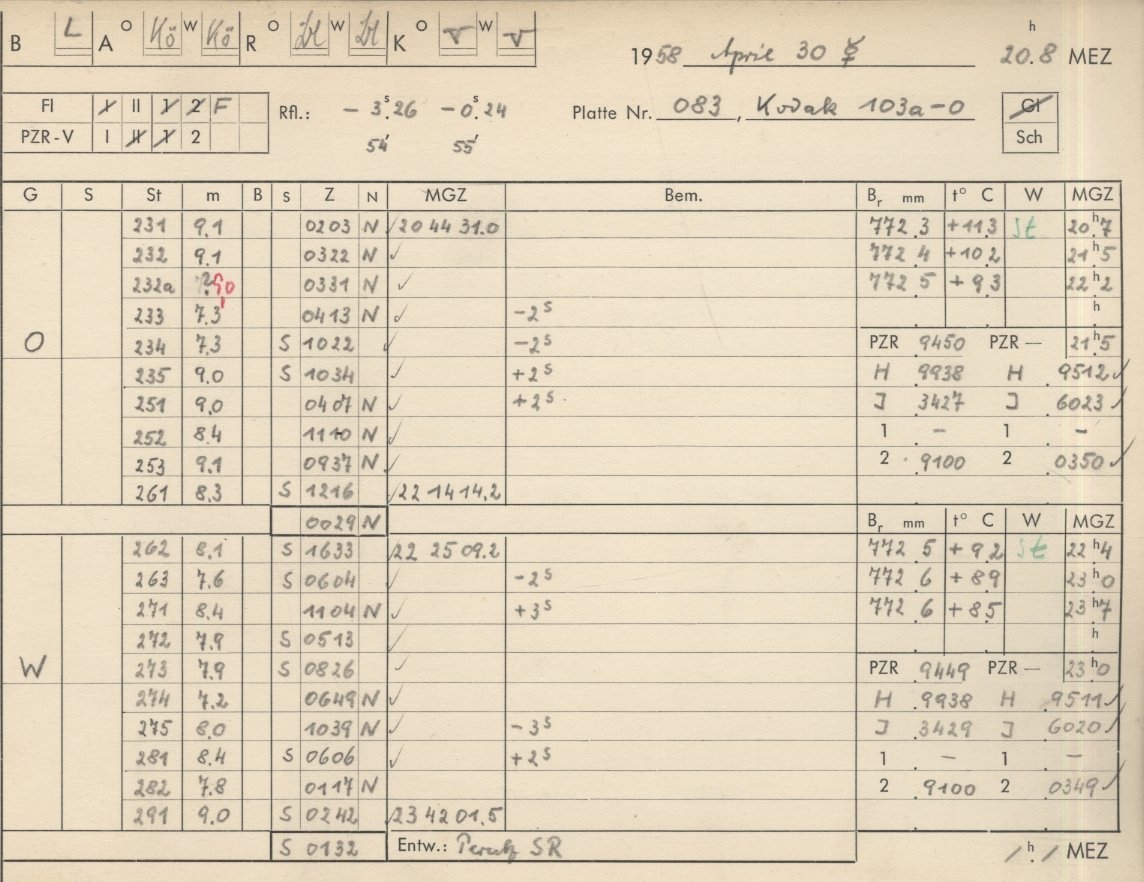 B L A O Kö W Kö R O W K O v W v
1958 April 30 ☿ 20.8 h MEZ
Fl I II 1 2 F Rfl.: − 3.ˢ26 −0.ˢ24 Platte Nr. 083, Kodak 103a-O Gl
PZR-V I II 1 2 54′ 55′ Sch
G S St m B S Z N MGZ Bem. Bᵣ mm t° C W MGZ
O
231 9.1 0203 N 20 44 31.0 772.3 +11.3 St 20.ʰ7
232 9.1 0322 N ✓ 772.4 +10.2 21.ʰ5
232a 9.0 0331 N ✓ 772.5 +9.3 22.ʰ2
233 7.3 0413 N ✓ −2ˢ h
234 7.3 S 1022 ✓ −2ˢ PZR 9450 PZR — 21.ʰ5
235 9.0 S 1034 ✓ +2ˢ H 9938 H 9512 ✓
251 9.0 0407 N ✓ +2ˢ J 3427 J 6023 ✓
252 8.4 1110 N ✓ 1 − 1 −
253 9.1 0937 N ✓ 2 9100 2 0350 ✓
261 8.3 S 1216 22 14 14.2
0029 N Bᵣ mm t° C W MGZ
W
262 8.1 S 1633 22 25 09.2 772.5 +9.2 St 22.ʰ4
263 7.6 S 0604 ✓ −2ˢ 772.6 +8.9 23.ʰ0
271 8.4 1104 N ✓ +3ˢ 772.6 +8.5 23.ʰ7
272 7.9 S 0513 ✓ h
273 7.9 S 0826 ✓ PZR 9449 PZR — 23.ʰ0
274 7.2 0649 N ✓ H 9938 H 9511 ✓
275 8.0 1039 N ✓ −3ˢ J 3429 J 6020 ✓
281 8.4 S 0606 ✓ +2ˢ 1 − 1 −
282 7.8 0117 N 2 9100 2 0349 ✓
291 9.0 S 0242 23 42 01.5
S 0132 Entw.: Perutz SR / h. / MEZ